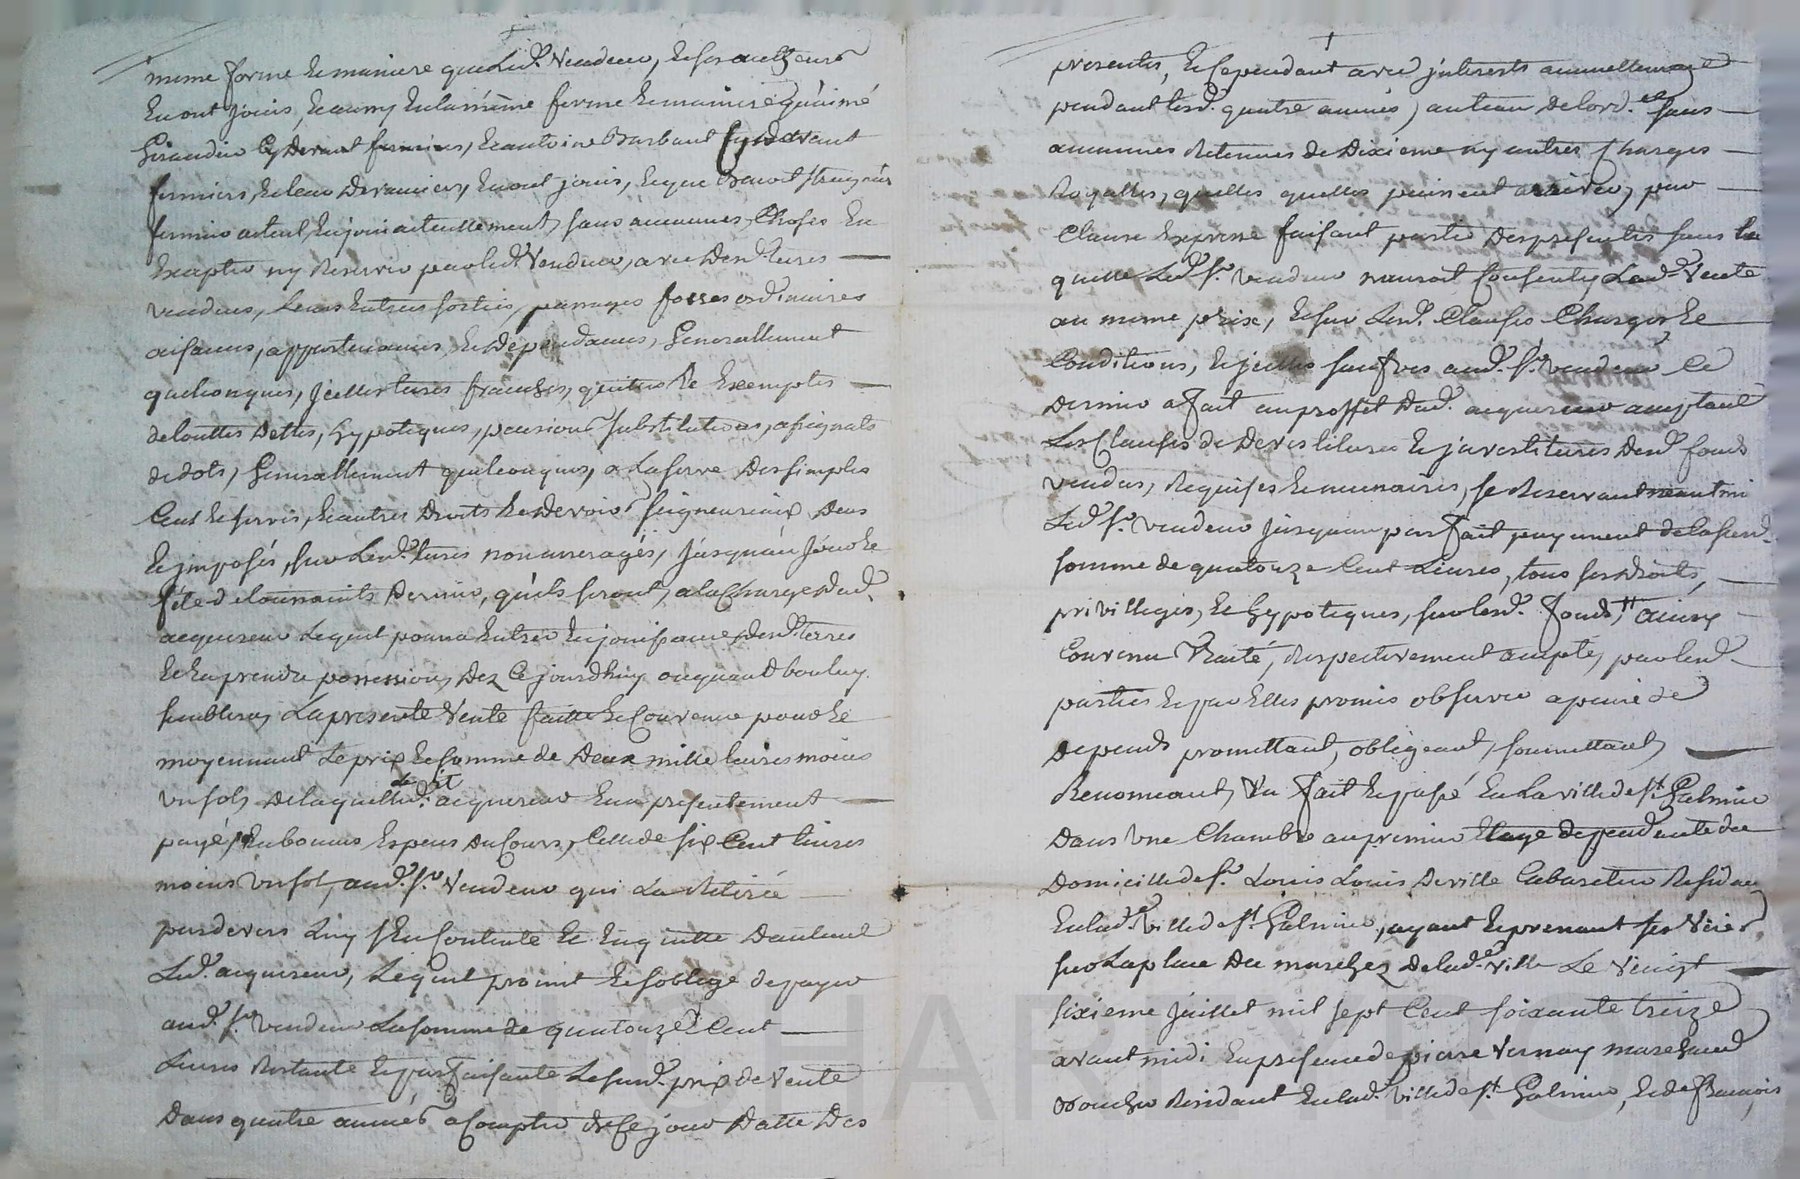 meme forme et maniere que led. vendeur, et ses autheurs
en ont jouis, et ainsy en la même forme et maniere qu'aimé
Giraudin cy devant fermier, et antoine Barbant cy devant
fermiers, et leur devanciers, en ont jouis, et que Benoit
fermier actuel, en joui actuellement, sans aucunnes choses en
excepter ny reserver par led. vendeur, avec desd. terres
vendues, leurs entrées sorties, passages fosses ordinaires
aisances, appartenances, et dépendances, Generallement
quelconques, jcelles terres franches, quittes et exemptes
de touttes dettes, hypoteques, pensions substitutions, assignats
de dots, Generallement quelconques, a la reserve des simples
Cens et servis, et autres droits et devoirs seigneuriaux deus
et jmposés, sur lesd. terres non arreragés, jusqu'au jour et
féte de toussaints dernier, qu'ils seront, a la charge dud.
acquereur lequel pourra entrer en jouissance desd. terres
et en prendre possession, dez ce jourdhuy ou quand bon luy
semblera, La presente vente faitte et convenue pour et
moyennant le prix et somme de deux mille livres moins
un sol, de laquelle led. acquereur en a presentement
payé, en bonnes especes du cours, celle de six cent livres
moins un sol, aud. sr. vendeur qui la retirée
pardevers luy s'en contente et en quitte dautant
led. acquereur, lequel promet et s'oblige de payer
aud. sr. vendeur la somme de quatorze cent
livres restante et parfaisante le susd. prix de vente
dans quatre années a compter de ce jour datte des
presentes, et cependant avec jnterests annuellement
pendant lesd. quatre années, au teau de lord.ce sans
aucunnes retenues de dixieme ny autres charges
Royalles, quelles quelles puissent arriver, par
clause expresse faisant partie des presentes sans la
quelle led. sr. vendeur n'auroit consenty lad. vente
au meme prix, et sur lesd. clauses charges et
conditions, et jcelles sauves aud. sr. vendeur ce
dernier a fait au proffit dud. acquereur acceptant
les clauses de devestitures et jnvestitures desd. fonds
vendus, requises et necessaires, se reservant neantmoins
led. sr. vendeur jusqu'au parfait payement de la susd.
somme de quatorze cent livres, tous ses droits,
privilleges, et hypoteques, sur lesd. fonds, ainsy
convenu traité, respectivement accepté, par lesd.
parties et par elles promis observer a peine de
depends promettant, obligeant, soumettant,
Renonceant, &a fait et passé en la ville de st. Galmier
dans une chambre au premier etage dependante du
domicille de sr. Louis Louis Deville cabaretier residant
en lad. ville de st. Galmier, ayant et prenant ses vües
sur la place du marchez de lad. ville le vingt
sixieme juillet mil sept cent soixante treize
avant midi en presence de pierre Vernay marchand
boucher residant en lad. ville de st. Galmier, et de françois